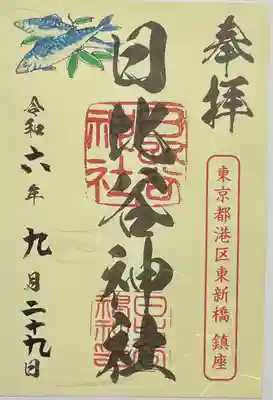 奉拝
東京都港区東新橋 鎮座
日比谷神社
令和六年 九月二十九日